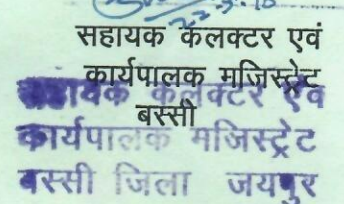 22-3-18
सहायक कलक्टर एवं
कार्यपालक मजिस्ट्रेट
बस्सी
सहायक कलक्टर एवं
कार्यपालक मजिस्ट्रेट
बस्सी जिला जयपुर